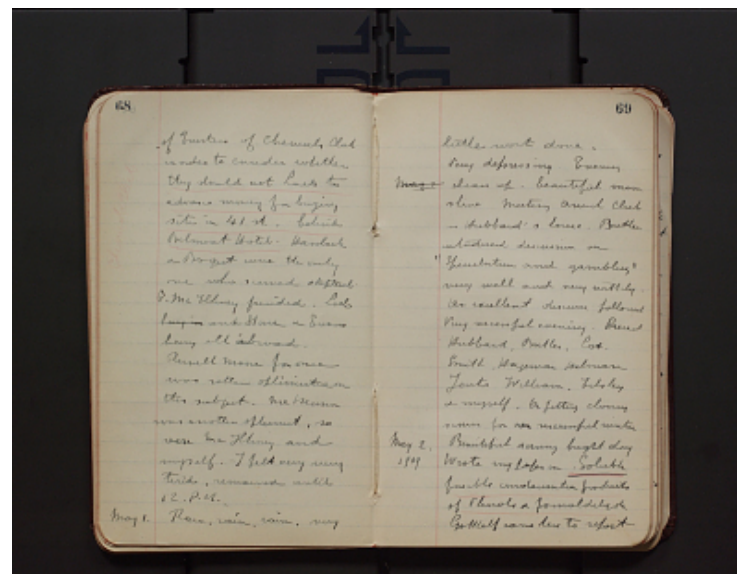 68
of Trustees of Chemists Club
in order to consider whether
they should not have to
advance money for buying
site in 41 st.
Belmont Hotel.
were the only
one who seemed skeptical
presided.
and Stone & Evans
being all abroad.
Russell Moore for once
was rather optimistic on
this subject.
was another optimist, so
were Mc Ilhiney and
myself. I felt very very
tired, remained until
12. P.M.
May 1. Rain, rain, rain, very
69
little work done.
Very depressing Evening
clears up. Beautiful moon
shine Meeting Club
in Hubbard's house. Butler
introduced discussion on
"Speculation and gambling"
very well and very wittily.
An excellent discussion followed
Very successful evening. Present
Hubbard, Butler,
Smith, Hageman
William,
& myself. A fitting closing
for successful winter
May 2. Beautiful sunny bright day
1909 Wrote my paper on Soluble
fusible condensation products
of Phenols & Formaldehyde
Gotthelf came here to report